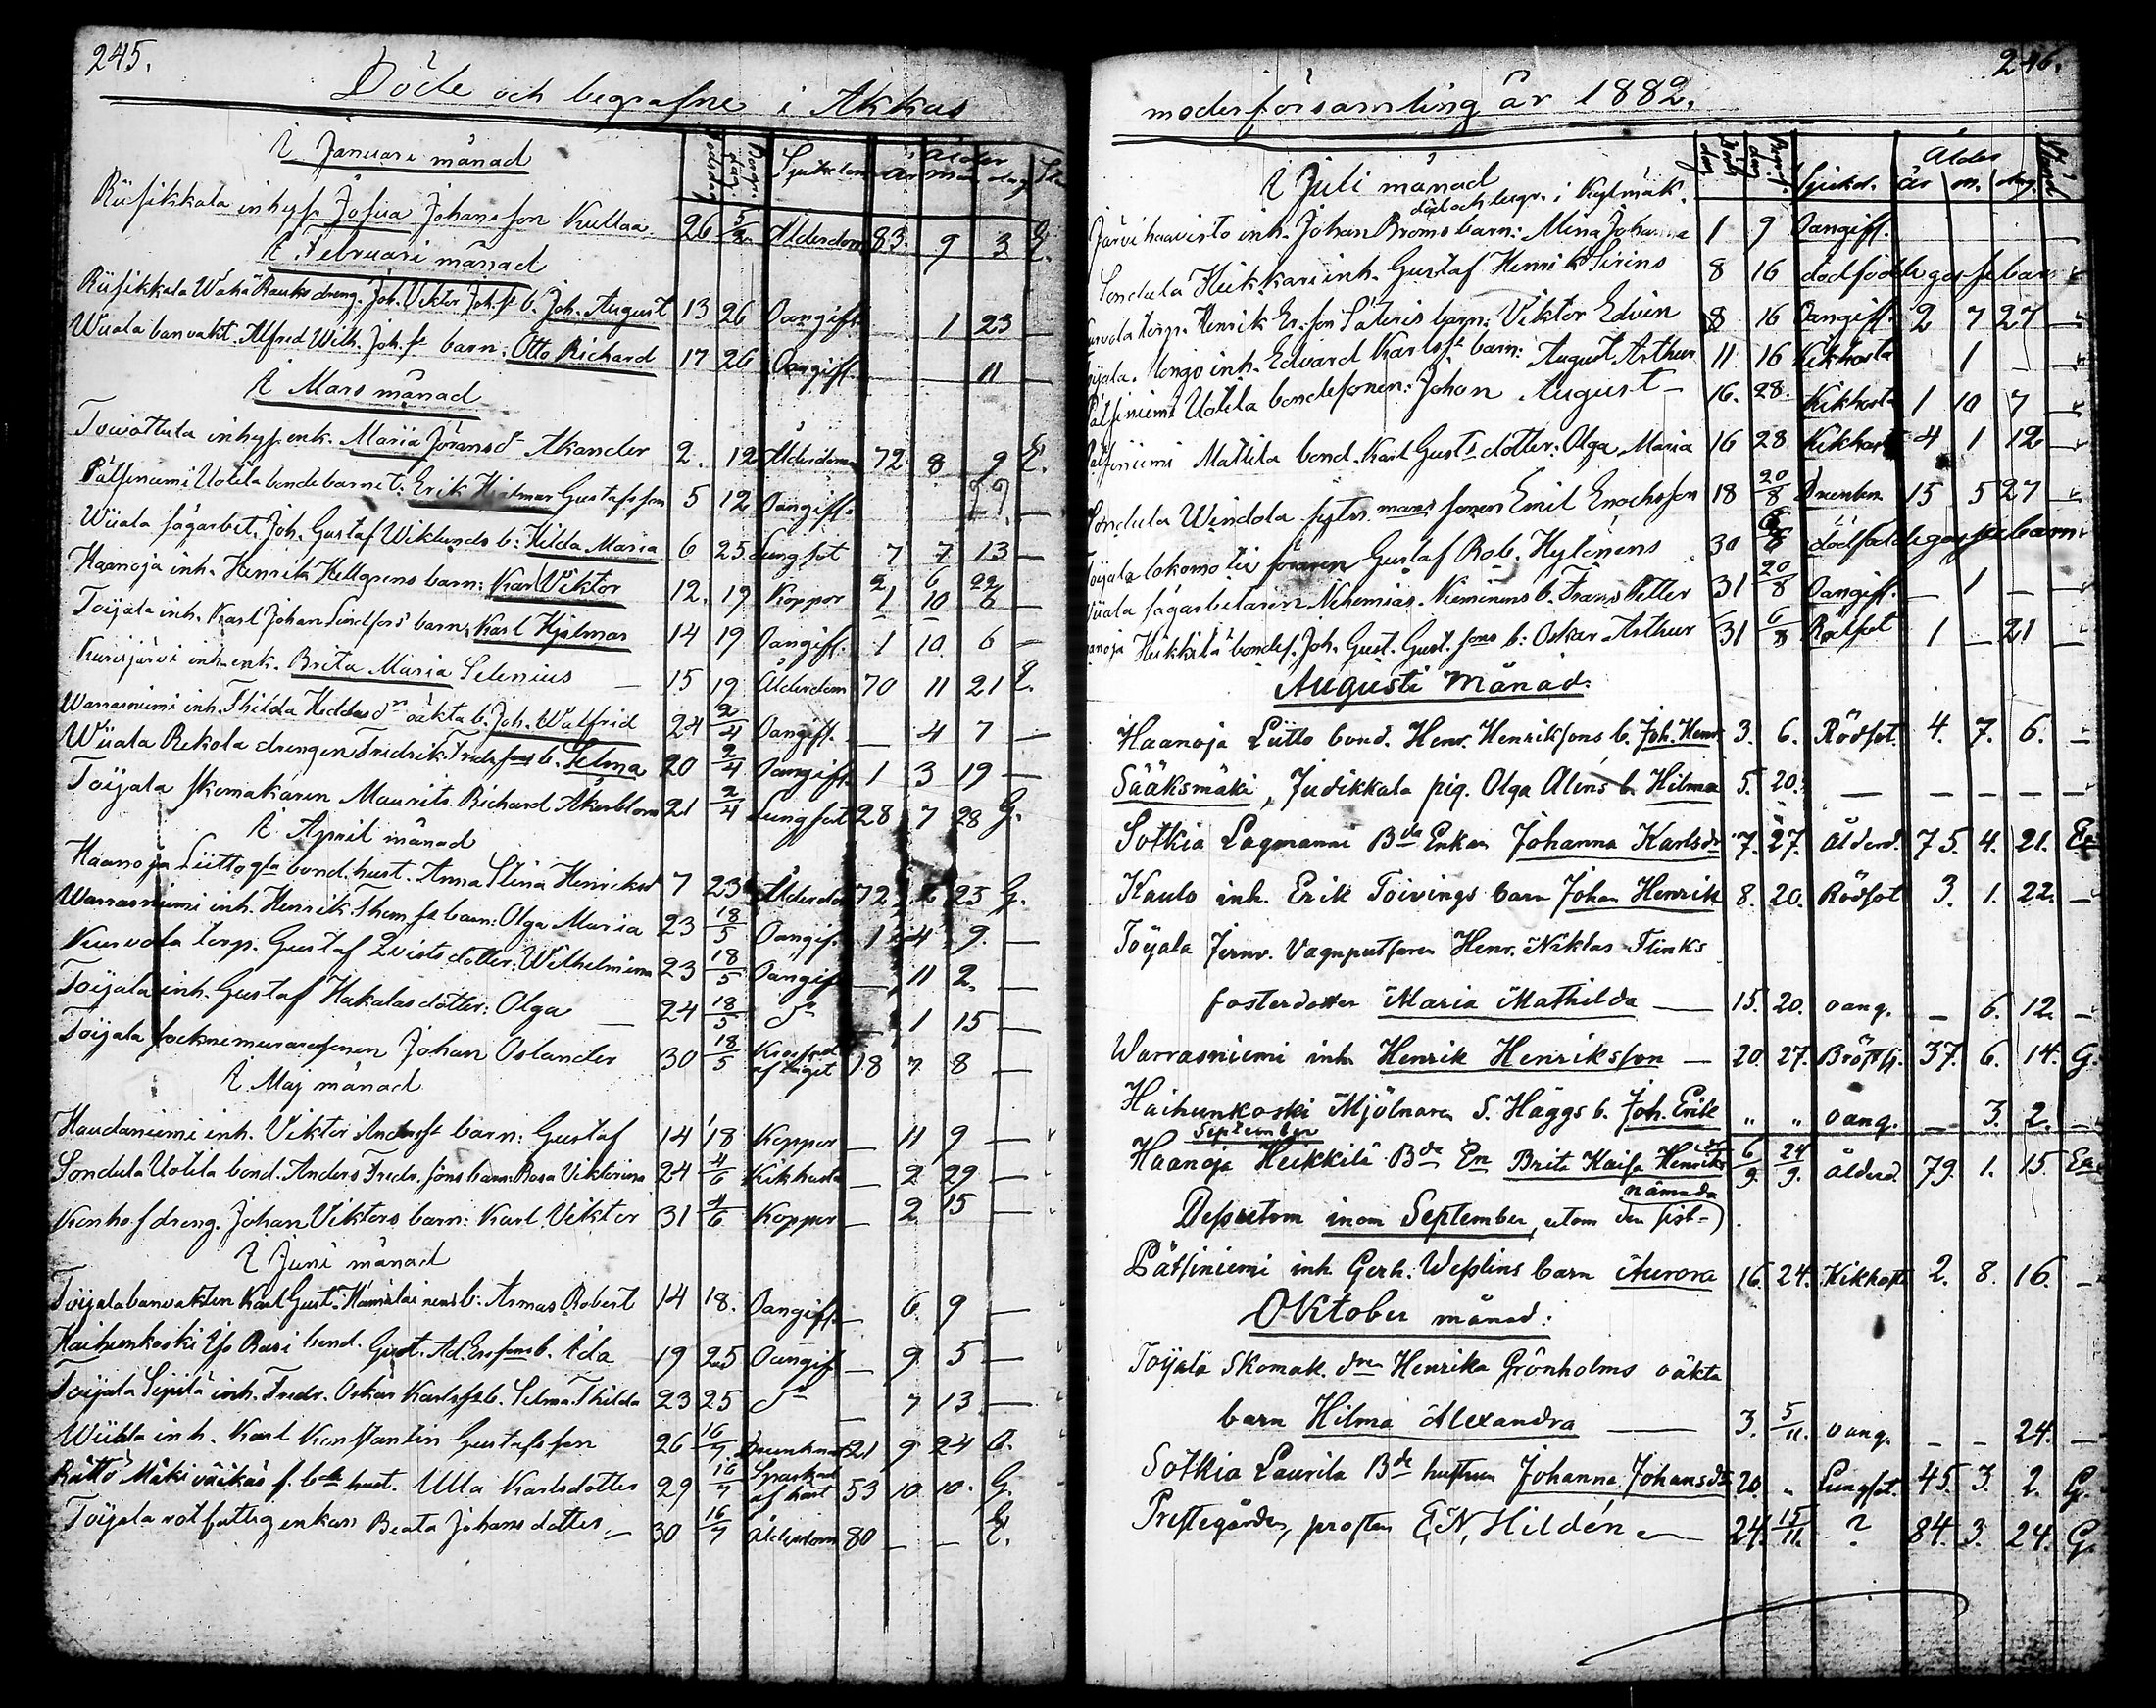 245.
Döde och begrafne i Akkas
I Januari månad
Dödsdag Begr. dag Sjukdom Ålder år mån dag
Riisikkala inhys. Josua Johansson Kullaa 26 5/2 Ålderdom 83 9 3 E.
I Februari månad
Riisikkala Wähä Rauks dreng. Joh. Viktor Joh.s b. Joh. August 13 26 Oangift. 1 23 —
Wiiala banvakt. Alfred Wilh. Joh.s barn: Otto Richard 17 26 Oangift. 11 —
I Mars månad
Toivottula inhys enk. Maria Göransdr Akander 2. 12 Ålderdom 72 8 9 E.
Pätsiniemi Uotila bondebarnet: Erik Hjalmar Gustafsson 5 12 Oangift. —
Wiiala sågarbet. Joh. Gustaf Wiklunds b: Hilda Maria 6 25 Lungsot 7 7 13 —
Haanoja inh. Henrik Hellgrens barn: Karl Viktor 12. 19 Koppor 2 6 22 1 10 6 —
Toijala inh. Karl Johan Lindfors' barn: Karl Hjalmar 14 19 Oangift. 1 10 6 —
Kurisjärvi inh. enk. Brita Maria Selenius — 15 19 Ålderdom 70 11 21 E.
Warrasniemi inh. Thilda Heddasdrs oäkta b. Joh. Walfrid 24 2/4 Oangift. — 4 7 —
Wiiala Rekola drengen Fredrik Fredrssons b. Selma 20 2/4 Oangift 1 3 19 —
Toijala skomakaren Maurits Richard Åkerblom 21 2/4 Lungsot 28 7 28 G.
I April månad
Haanoja Liitto gla bond. hust. Anna Stina Henriksdr 7 23 Ålderdom 72 2 23 G.
Warrasniemi inh. Henrik Thom.s barn: Olga Maria 23 18/5 Oangif. 1 4 9. —
Kurvola torp. Gustaf Qvists dotter: Wilhelmina 23 18/5 Oangif — 11 2. —
Toijala inh. Gustaf Hakalas dotter: Olga — 24 18/5 do — 1 15 —
Toijala sockne Johan Oslander 30 18/5 af tåget 18 7 8 —
I Maj månad
Haudaniemi inh. Viktor Anders.s barn: Gustaf 14 18 Koppor — 11 9 —
Sondula Uotila bond. Anders Fredr.sons barn: Rosa Viktorina 24 4/6 Kikhosta — 2 29 —
Konho s dreng. Johan Viktors barn: Karl Viktor 31 4/6 Koppor — 2 15 —
I Juni månad
Toijala banvakten Karl Gust. Hämäläinens b. Armas Robert 14 18. Oangift. — 6. 9 —
Haihunkoski Yso Rasi bond. Gust. Ad. Erssons b. Ida 19 25 Oangif — 9. 5 —
Toijala Sipilä inh. Fredr. Oskar Karls.s b. Selma Thilda 23 25 do — 7 13 —
Wiiala inh. Karl Konstantin Gustafsson 26 16/7 Drunknat 21 9 24 O.
Rättö Mäki väikäs f. bde hust. Ulla Karlsdotter 29 16/7 Sparkad af häst 53 10 10. G.
Toijala rotfattig enkan Beata Johansdotter — 30 16/7 Ålderdom 80 — — E.
246.
moderförsamling år 1882.
I Juli månad
Död dag Begr. dag Sjukd. Ålder år m. dag. Stånd
död och begr. i Kylmäk.
Järvihaavisto inh. Johan Broms barn: Mina Johanna 1 9 Oangift.
Sondula Heikkari inh. Gustaf Henrik Sirins 8 16 dödfödt barn
Kurvola torp. Henrik Er.son Säteris barn: Viktor Edvin 8 16 Oangift. 2 7 27 —
Toijala. Hongo inh. Edvard Karls.s barn: August Arthur 11 16 Kikhosta 1 — —
Pätsiniemi Uotila bondesonen: Johan August — 16. 28. Kikhosta 1 10 7 —
Pätsiniemi Mattila bond. Karl Gust.s dotter: Olga Maria 16 28 Kikhosta 4 1 12 —
Sondula Windola sytn. mans sonen Emil Enochsson 18 20/8 15 5 27 —
Toijala lokomotivföraren Gustaf Rob. Hyténens 30 6/8 dödfödt gossebarn
Wiiala sågarbetaren Nehemias Nieminens b. Frans Petter 31 20/8 Oangift. — 1 — —
Haanoja Heikkilä bondes. Joh. Gust. Gust.sons b: Oskar Arthur 31 6/8 Rödsot 1 — 21 —
Augusti Månad.
Haanoja Liitto bond. Henr. Henriksons b. Joh. Henr. 3. 6. Rödsot. 4. 7. 6. —
Sääksmäki, Judikkala pig. Olga Alins b. Hilma 5. 20. — — — — —
Sotkia Lagmanni Bda Enkan Johanna Karlsdr 7. 27. ålderd. 75. 4. 21. En
Kaulo inh. Erik Toivings barn Johan Henrik 8. 20. Rödsot 3. 1. 22. —
Toijala Jernv. Vagnputsaren Henr. Niklas Flinks
fosterdotter Maria Mathilda — 15. 20. oang. — 6. 12. —
Warrasniemi inh. Henrik Henriksson — 20. 27. Bröstsj. 37. 6. 14. G.
Haihunkoski Mjölnaren S. Häggs b. Joh. Erik " " oang. — 3. 2. —
September
Haanoja Heikkilä Bda En Brita Kaisa Henriksdr 6/9. 24/9. ålderd. 79. 1. 15. En
Dessutom inom September, utom den sist-nämnda
Pätsiniemi inh. Gerh. Wesslins barn Aurora 16. 24. Kikhosta 2. 8. 16. —
Oktober månad:
Toijala Skomak. drn Henrika Grönholms oäkta
barn Hilma Alexandra — 3. 5/11. oang. — — 24. —
Sotkia Laurila Bde hustrun Johanna Johansdr 20. " Lungsot. 45. 3. 2. G.
Prestegården, prosten E. N. Hildén — 24. 15/11. ? 84. 3. 24. G.